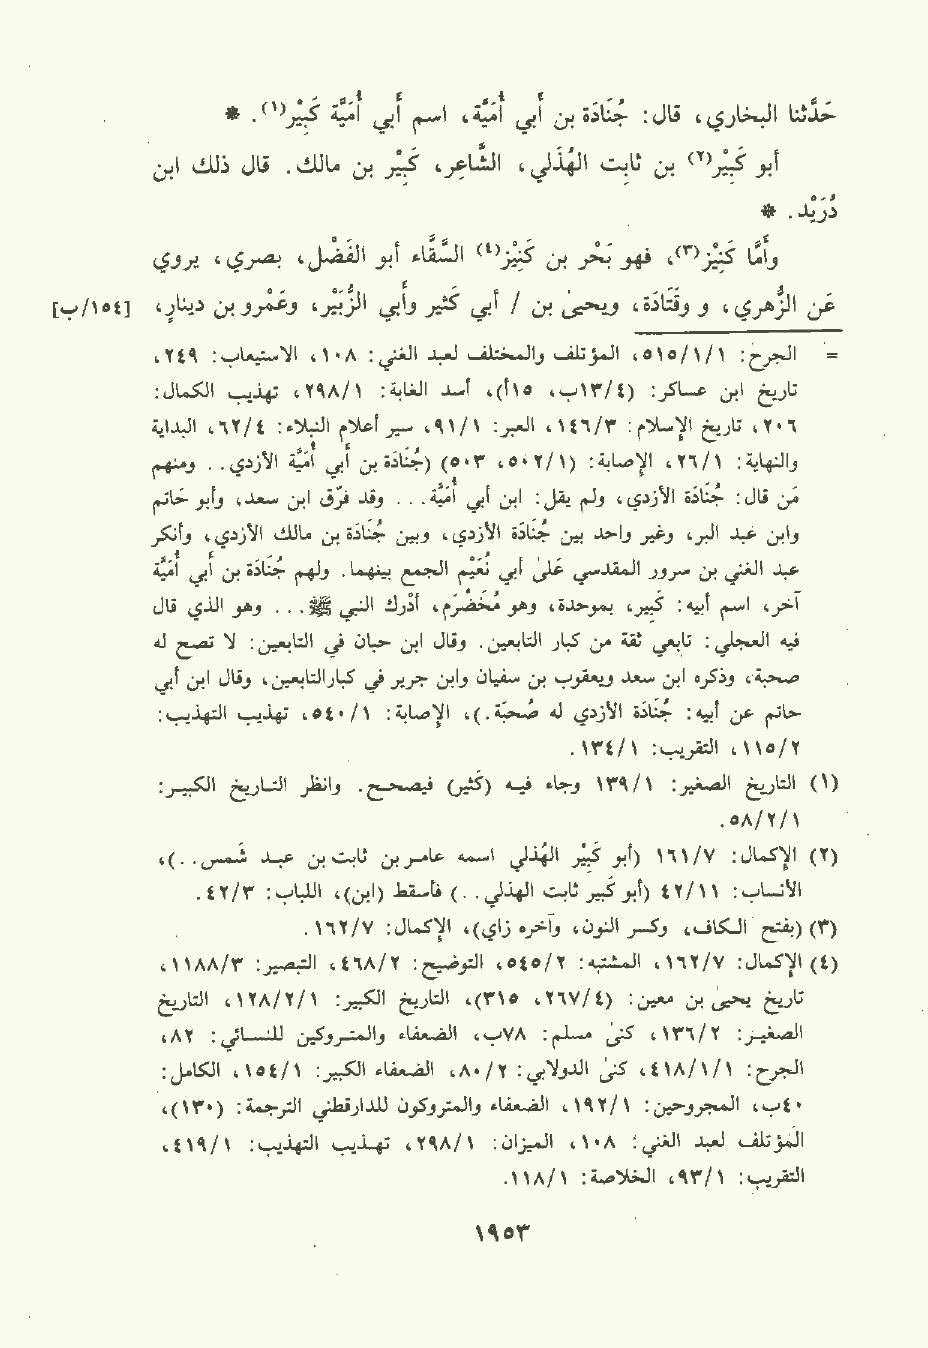 حَدَّثنا البخاري، قال: جُنَادَة بن أَبي أُمَيَّة، اسم أَبي أُمَيَّة كَبِيْر(١). *
أبو كَبِيْر(٢) بن ثابت الهُذَلي، الشَّاعِر، كَبِيْر بن مالك. قال ذلك ابن
دُرَيْد. *
وأَمَّا كَنِيْز(٣)، فهو بَحْر بن كَنِيْز(٤) السَّقَّاء أبو الفَضْل، بصري، يروي
عَن الزُّهري، و وقَتَادَة، ويحيىٰ بن / أبي كَثير وأَبي الزُّبَيْر، وعَمْرو بن دينار، [١٥٤/ب]
= الجرح: ١/١/٥١٥، المؤتلف والمختلف لعبد الغني: ١٠٨، الاستيعاب: ٢٤٩،
تاريخ ابن عساكر: (٤/١٣ب، ١٥أ)، أسد الغابة: ١/٢٩٨، تهذيب الكمال:
٢٠٦، تاريخ الإسلام: ٣/١٤٦، العبر: ١/٩١، سير أعلام النبلاء: ٤/٦٢، البداية
والنهاية: ١/٢٦، الإصابة: (١/٥٠٢، ٥٠٣) (جُنَادَة بن أَبي أُمَيَّة الأزدي.. ومنهم
مَن قال: جُنَادَة الأزدي، ولم يقل: ابن أبي أُمَيَّة... وقد فرَّق ابن سعد، وأبو حَاتم
وابن عبد البر، وغير واحد بين جُنَادَة الأزدي، وبين جُنَادَة بن مالك الأزدي، وأنكر
عبد الغني بن سرور المقدسي عَلىٰ أبي نُعَيْم الجمع بينهما. ولهم جُنَادَة بن أَبي أُمَيَّة
آخر، اسم أبيه: كَبِير، بموحدة، وهو مُخَضْرَم، أدْرك النبي ﷺ... وهو الذي قال
فيه العجلي: تابعي ثقة من كبار التابعين. وقال ابن حبان في التابعين: لا تصح له
صحبة، وذكره ابن سعد ويعقوب بن سفيان وابن جرير في كبار التابعين، وقال ابن أبي
حاتم عن أبيه: جُنَادَة الأزدي له صُحبَة.)، الإصابة: ١/٥٤٠، تهذيب التهذيب:
٢/١١٥، التقريب: ١/١٣٤.
(١) التاريخ الصغير: ١/١٣٩ وجاء فيه (كَثير) فيصحح. وانظر التاريخ الكبير:
١/٢/٥٨.
(٢) الإكمال: ٧/١٦١ (أبو كَبِيْر الهُذلي اسمه عامر بن ثابت بن عبد شَمس..)،
الأنساب: ١١/٤٢ (أبو كَبير ثابت الهذلي..) فأسقط (ابن)، اللباب: ٣/٤٢.
(٣) (بفتح الكاف، وكسر النون، وآخره زاي)، الإكمال: ٧/١٦٢.
(٤) الإكمال: ٧/١٦٢، المشتبه: ٢/٥٤٥، التوضيح: ٢/٤٦٨، التبصير: ٣/١١٨٨،
تاريخ يحيىٰ بن معين: (٤/٢٦٧، ٣١٥)، التاريخ الكبير: ١/٢/١٢٨، التاريخ
الصغير: ٢/١٣٦، كنىٰ مسلم: ٧٨ب، الضعفاء والمتروكين للنسائي: ٨٢،
الجرح: ١/١/٤١٨، كنىٰ الدولابي: ٢/٨٠، الضعفاء الكبير: ١/١٥٤، الكامل:
٤٠ب، المجروحين: ١/١٩٢، الضعفاء والمتروكون للدارقطني الترجمة: (١٣٠)،
المؤتلف لعبد الغني: ١٠٨، الميزان: ١/٢٩٨، تهذيب التهذيب: ١/٤١٩،
التقريب: ١/٩٣، الخلاصة: ١/١١٨.
١٩٥٣